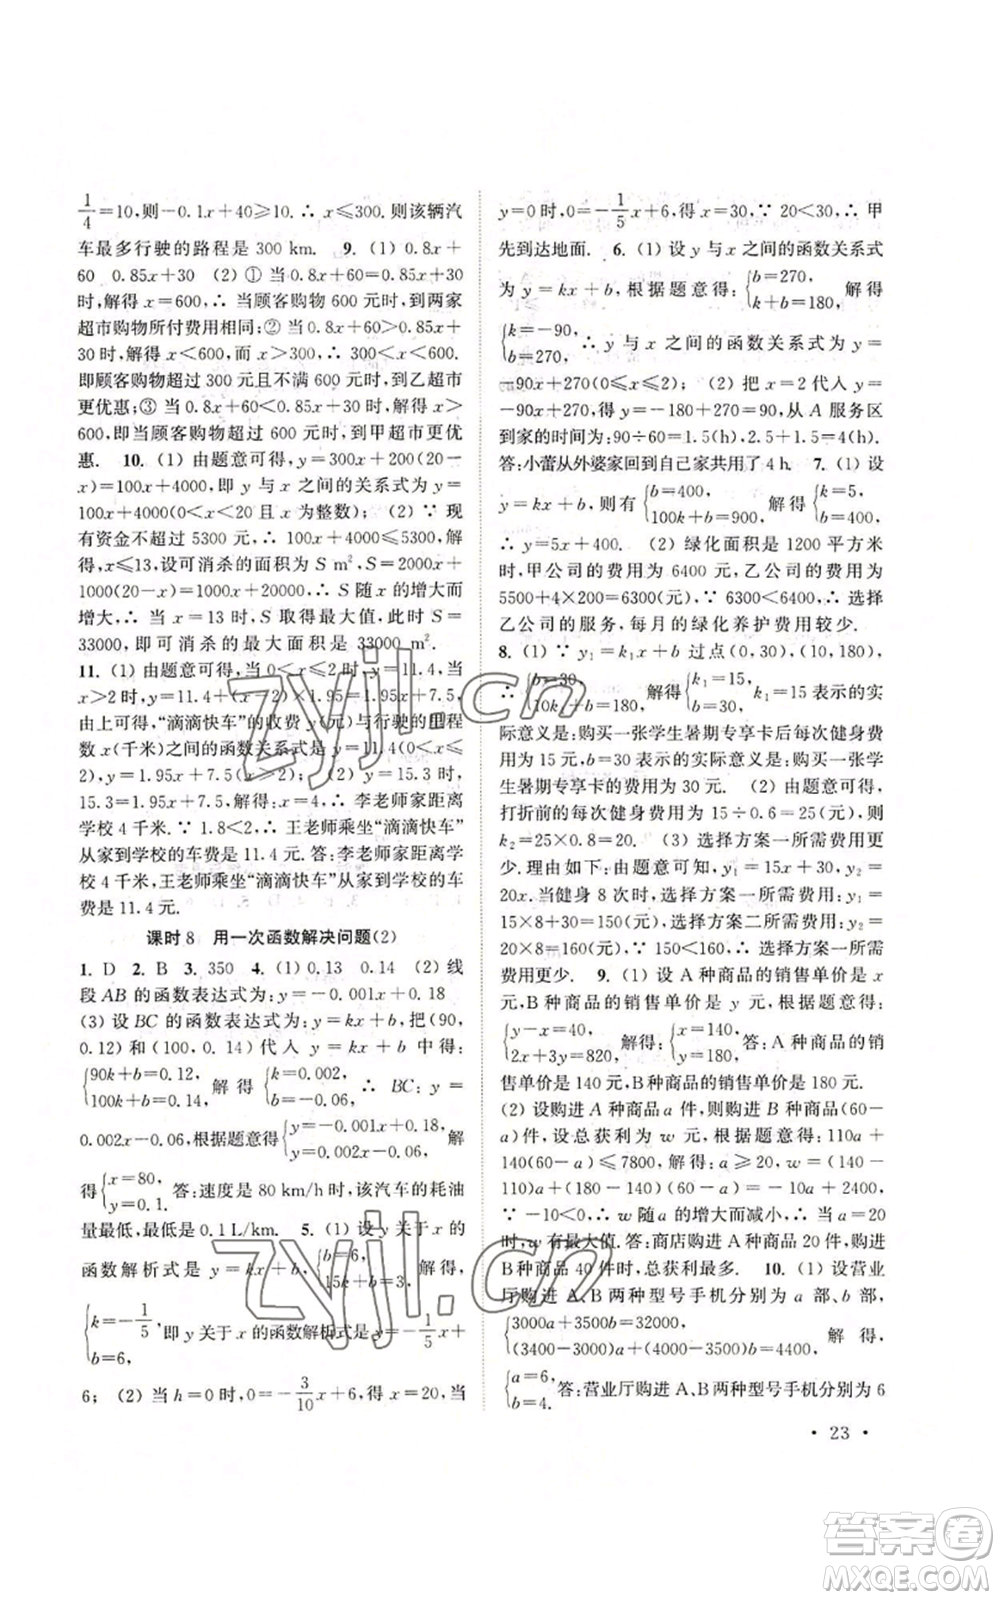 1/4=10,则-0.1x+40≥10.∴x≤300.则该辆汽
车最多行驶的路程是 300 km. 9. (1) 0.8x+
60 0.85x+30 (2) ① 当 0.8x+60=0.85x+30
时,解得 x=600,∴当顾客购物 600 元时,到两家
超市购物所付费用相同;② 当 0.8x+60>0.85x+
30 时,解得 x<600,而 x>300,∴ 300<x<600.
即顾客购物超过 300 元且不满 600 元时,到乙超市
更优惠;③ 当 0.8x+60<0.85x+30 时,解得 x>
600,即当顾客购物超过 600 元时,到甲超市更优
惠. 10. (1) 由题意可得, y=300x+200(20-
x)=100x+4000,即 y 与 x 之间的关系式为 y=
100x+4000(0<x<20 且 x 为整数). (2) ∵ 现
有资金不超过 5300 元,∴ 100x+4000≤5300.解
得,x≤13,设可消杀的面积为 S m²,S=2000x+
1000(20-x)=1000x+20000,∴ S 随 x 的增大而
增大,∴ 当 x=13 时,S 取得最大值,此时 S=
33000,即可消杀的最大面积是 33000 m².
11. (1) 由题意可得,当 0<x≤2 时,y=11.4,当
x>2 时,y=11.4+(x-2)×1.95=1.95x+7.5,
由上可得,“滴滴快车”的收费 y(元)与行驶的里程
数 x(千米)之间的函数关系式是 y=11.4(0<x≤
2),y=1.95x+7.5(x>2). (2) 当 y=15.3 时,
15.3=1.95x+7.5,解得:x=4,∴ 李老师家距离
学校 4 千米.∵ 1.8<2,∴ 王老师乘坐“滴滴快车”
从家到学校的车费是 11.4 元.答:李老师家距离学
校 4 千米,王老师乘坐“滴滴快车”从家到学校的车
费是 11.4 元.
课时 8 用一次函数解决问题(2)
1. D 2. B 3. 350 4. (1) 0.13 0.14 (2) 线
段 AB 的函数表达式为:y=-0.001x+0.18
(3) 设 BC 的函数表达式为:y=kx+b,把(90,
0.12)和(100,0.14)代入 y=kx+b 中得:
{90k+b=0.12, 100k+b=0.14, 解得 {k=0.002, b=-0.06, ∴ BC:y=
0.002x-0.06,根据题意得{y=-0.001x+0.18, y=0.002x-0.06, 解
得{x=80, y=0.1. 答:速度是 80 km/h 时,该汽车的耗油
量最低,最低是 0.1 L/km. 5. (1) 设 y 关于 x 的
函数解析式是 y=kx+b,{b=6, 15k+b=3, 解得:
{k=-1/5, b=6, 即 y 关于 x 的函数解析式是 y=-1/5x+
6; (2) 当 h=0 时,0=-3/10x+6,得 x=20,当
y=0 时,0=-1/5x+6,得 x=30,∵ 20<30,∴ 甲
先到达地面. 6. (1) 设 y 与 x 之间的函数关系式
为 y=kx+b,根据题意得:{b=270, k+b=180, 解得
{k=-90, b=270, ∴ y 与 x 之间的函数关系式为 y=
-90x+270(0≤x≤2); (2) 把 x=2 代入 y=
-90x+270,得 y=-180+270=90,从 A 服务区
到家的时间为:90÷60=1.5(h),2.5+1.5=4(h).
答:小蕾从外婆家回到自己家共用了 4 h. 7. (1) 设
y=kx+b,则有{b=400, 100k+b=900, 解得{k=5, b=400,
∴ y=5x+400. (2) 绿化面积是 1200 平方米
时,甲公司的费用为 6400 元,乙公司的费用为
5500+4×200=6300(元),∵ 6300<6400,∴ 选择
乙公司的服务,每月的绿化养护费用较少.
8. (1) ∵ y₁=k₁x+b 过点(0,30),(10,180),
∴{b=30, 10k₁+b=180, 解得{k₁=15, b=30, k₁=15 表示的实
际意义是:购买一张学生暑期专享卡后每次健身费
用为 15 元,b=30 表示的实际意义是:购买一张学
生暑期专享卡的费用为 30 元. (2) 由题意可得,
打折前的每次健身费用为 15÷0.6=25(元),则
k₂=25×0.8=20. (3) 选择方案一所需费用更
少.理由如下:由题意可知,y₁=15x+30,y₂=
20x.当健身 8 次时,选择方案一所需费用:y₁=
15×8+30=150(元),选择方案二所需费用:y₂=
20×8=160(元),∵ 150<160,∴ 选择方案一所需
费用更少. 9. (1) 设 A 种商品的销售单价是 x
元,B 种商品的销售单价是 y 元,根据题意得:
{y-x=40, 2x+3y=820, 解得:{x=140, y=180, 答:A 种商品的销
售单价是 140 元,B 种商品的销售单价是 180 元.
(2) 设购进 A 种商品 a 件,则购进 B 种商品(60-
a)件,设总获利为 w 元,根据题意得:110a+
140(60-a)≤7800,解得:a≥20,w=(140-
110)a+(180-140)(60-a)=-10a+2400,
∵ -10<0,∴ w 随 a 的增大而减小,∴ 当 a=20
时,w 有最大值.答:商店购进 A 种商品 20 件,购进
B 种商品 40 件时,总获利最多. 10. (1) 设营业
厅购进 A、B 两种型号手机分别为 a 部、b 部,
{3000a+3500b=32000, (3400-3000)a+(4000-3500)b=4400, 解得,
{a=6, b=4. 答:营业厅购进 A、B 两种型号手机分别为 6
• 23 •
zyjl.cn
zyjl.cn
答案卷
MXQE.COM